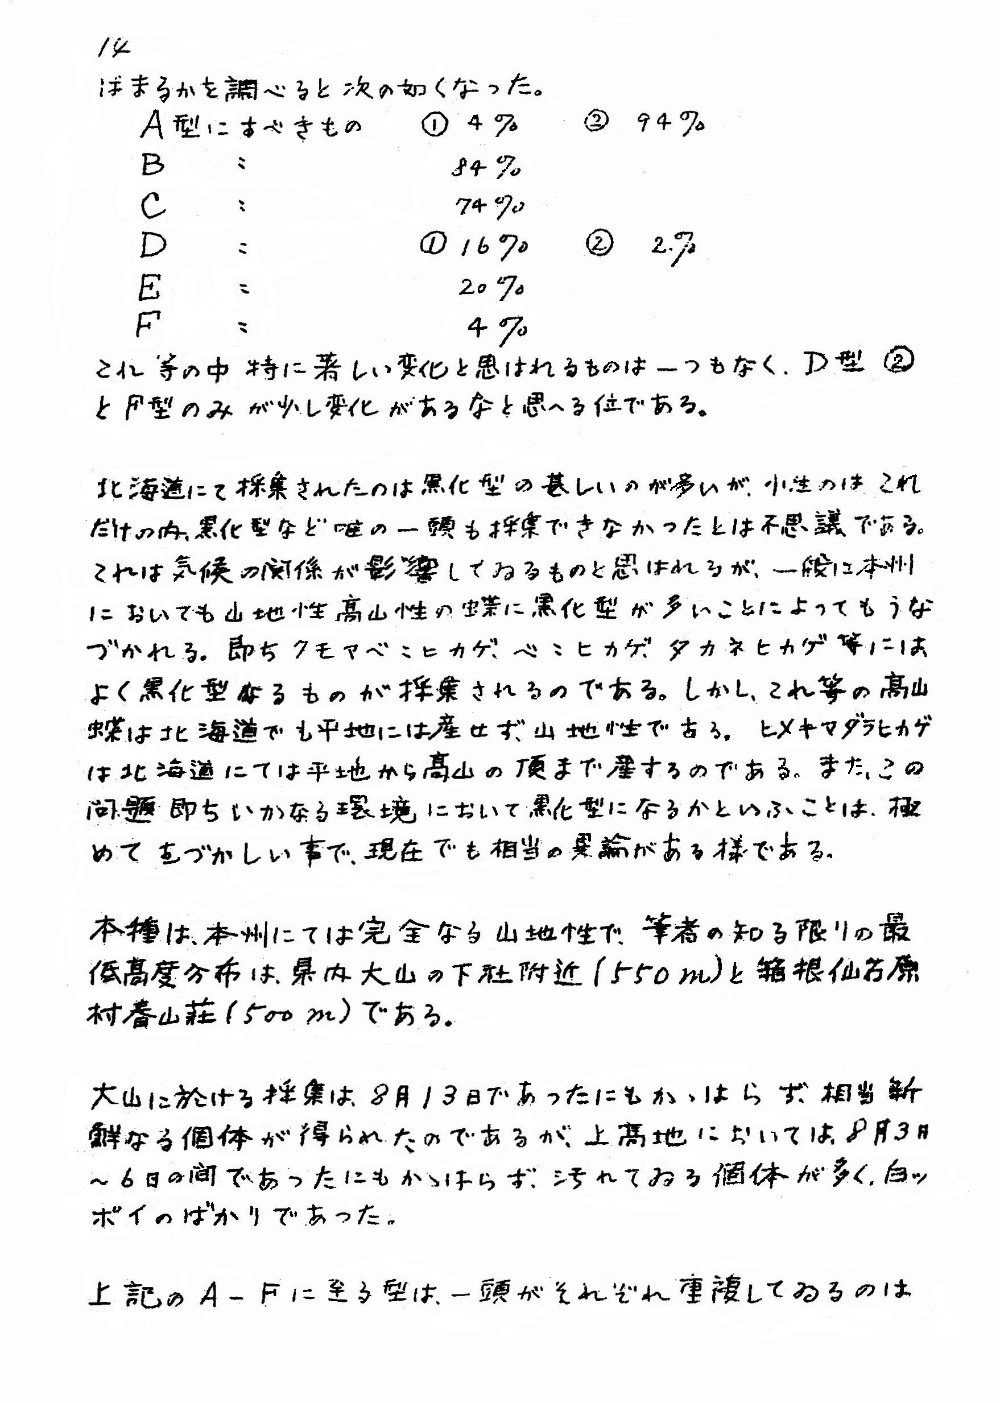 14
はまるかを調べると次の如くなった。
A型にすべきもの ① 4% ② 94%
B 〃 84%
C 〃 74%
D 〃 ① 16% ② 2%
E 〃 20%
F 〃 4%
これ等の中特に著しい変化と思はれるものは一つもなく、D型②
とF型のみが少し変化があるなと思へる位である。
北海道にて採集されたのは黒化型の甚しいのが多いが、小生のはこれ
だけの内、黒化型など唯の一頭も採集できなかったとは不思議である。
これは気候の関係が影響してゐるものと思はれるが、一般に本州
においても山地性高山性の蝶に黒化型が多いことによってもうな
づかれる。即ちクモマベニヒカゲ、ベニヒカゲ、タカネヒカゲ等には
よく黒化型なるものが採集されるのである。しかし、これ等の高山
蝶は北海道でも平地には産せず、山地性である。ヒメキマダラヒカゲ
は北海道にては平地から高山の頂まで産するのである。また、この
問題即ちいかなる環境において黒化型になるかといふことは、極
めてむづかしい事で、現在でも相当の異論がある様である。
本種は、本州にては完全なる山地性で、筆者の知る限りの最
低高度分布は、県内大山の下社附近(550m)と箱根仙石原
村春山荘(500m)である。
大山に於ける採集は、8月13日であったにもかゝはらず、相当新
鮮なる個体が得られたのであるが、上高地においては、8月3日
～6日の間であったにもかゝはらず、汚れてゐる個体が多く、白ッ
ポイのばかりであった。
上記のA－Fに至る型は、一頭がそれぞれ重複してゐるのは